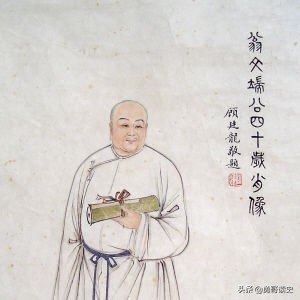 翁文端公四十歲肖像
顧廷龍敬題
头条 @勇哥读史